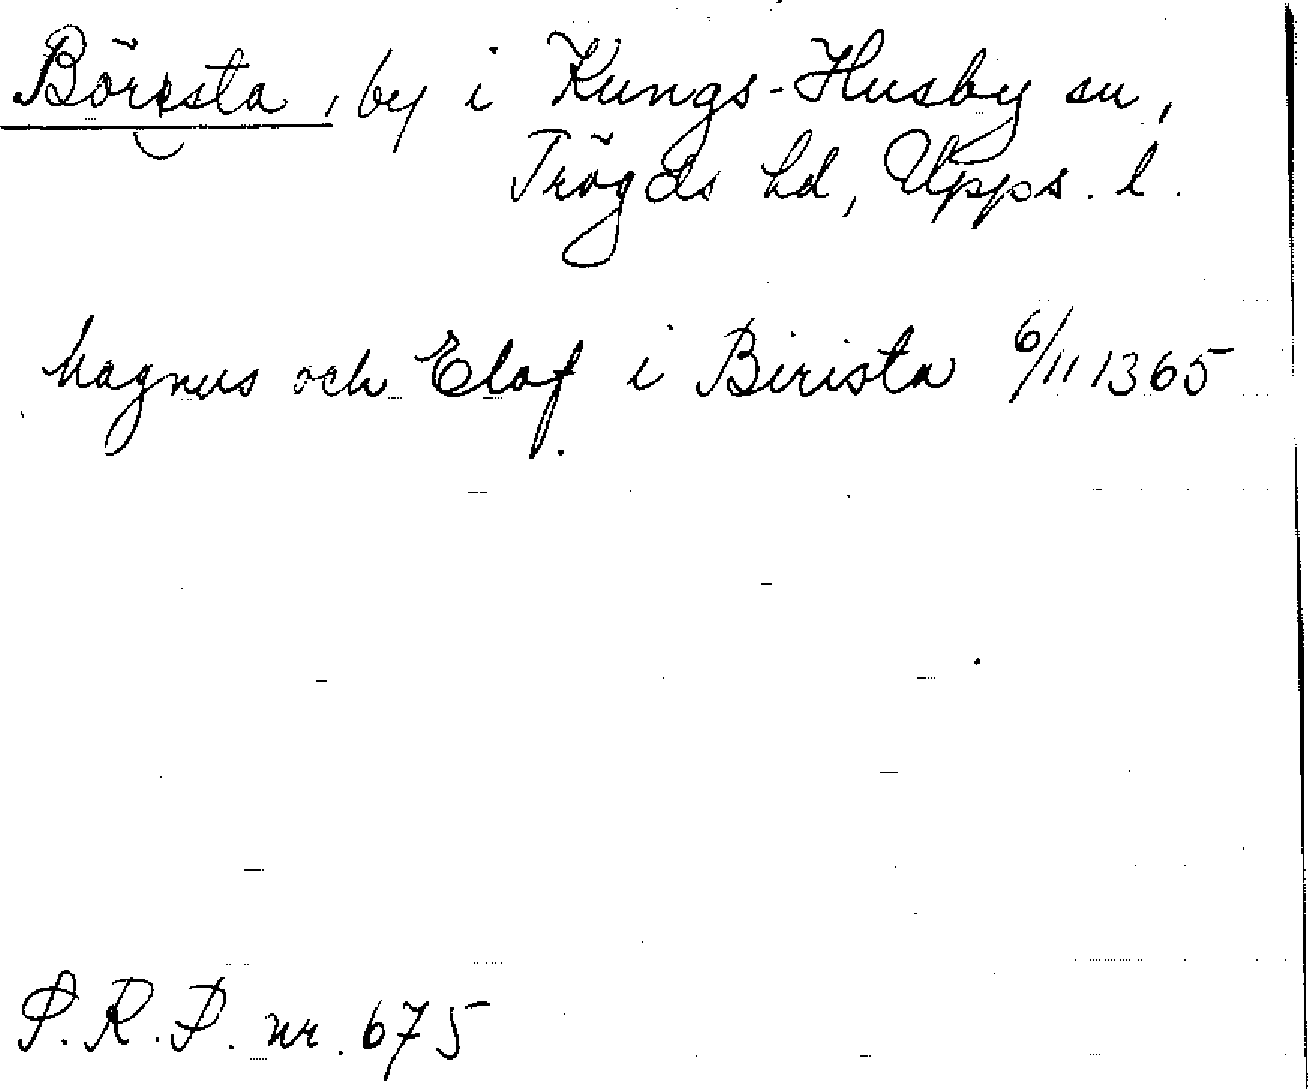 Börsta, by i Kungs-Husby sn,
Trögds hd, Upps. l.
Magnus och Elof i Birista 6/11 1365
S.R.P. nr. 675